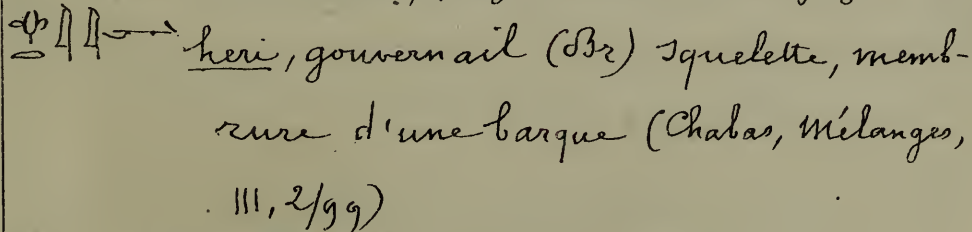 heri, gouvernail (Br) squelette, memb-
rure d'une barque (Chabas, Mélanges,
III, 2/99)